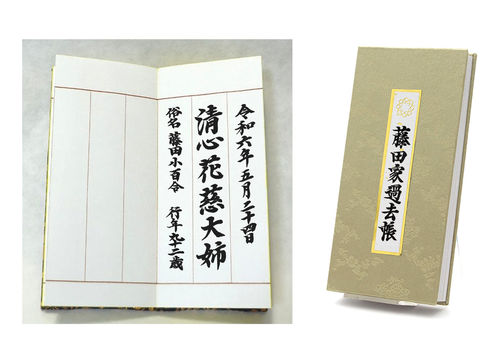 令和六年五月二十四日
清心花慈大姉
俗名 藤田小百合 行年九十二歳
藤田家過去帳